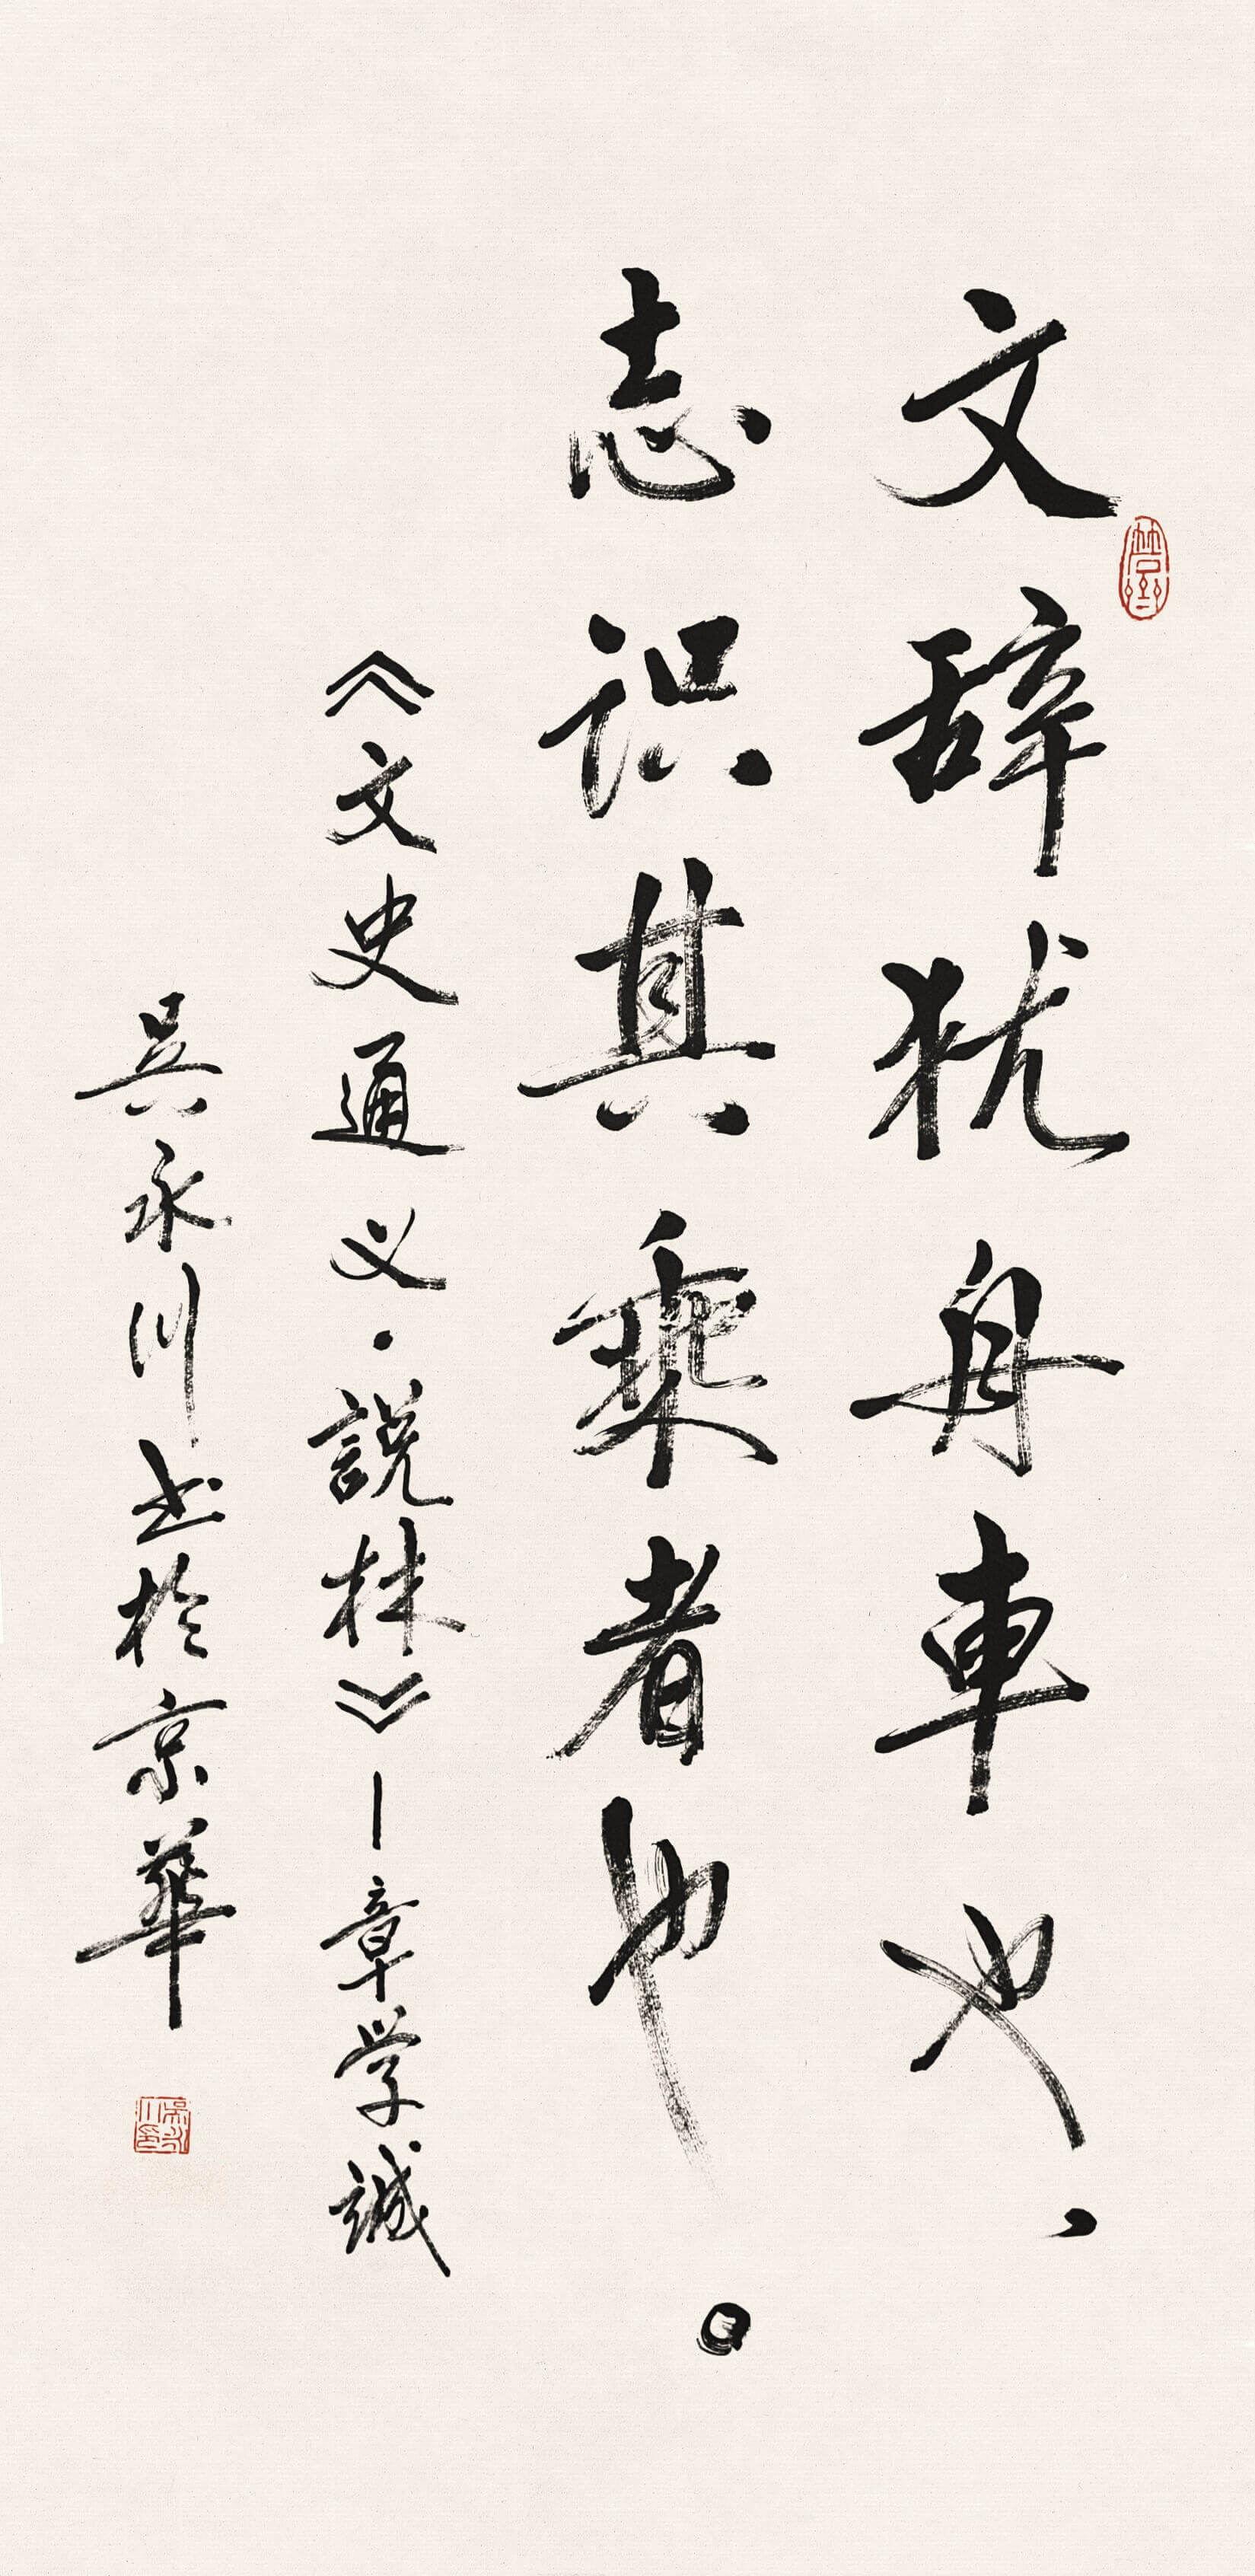 文辞犹舟車也、
志识其乘者也。
《文史通义·説林》—章学誠
吴永川书於京華